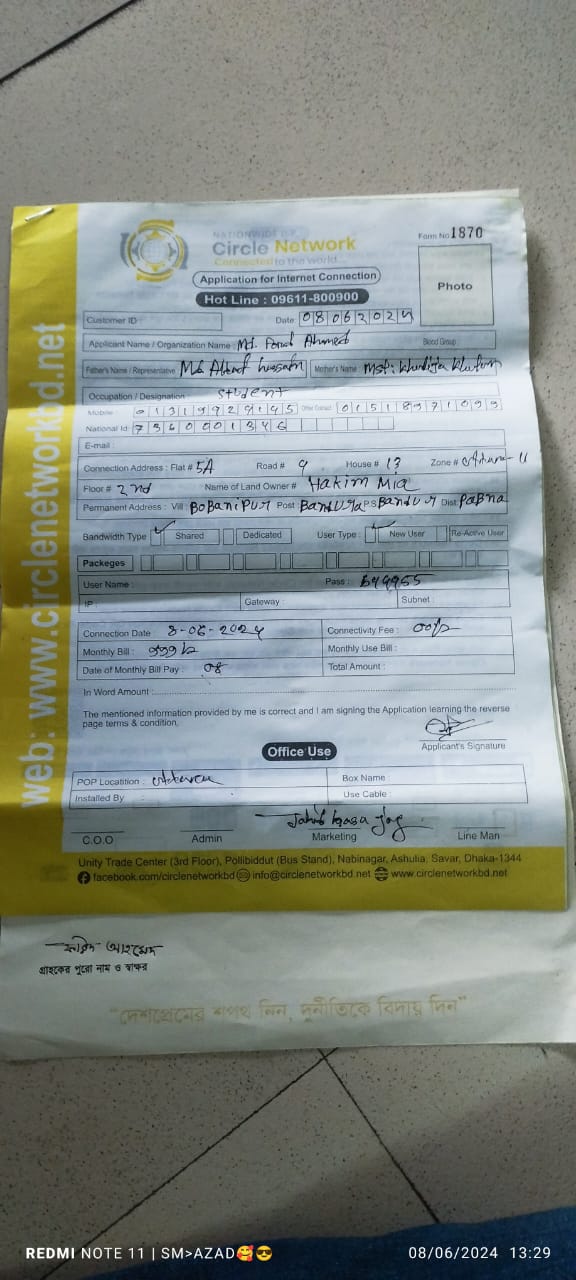 NATIONWIDE ISP
Circle Network
Connected to the world
Form No 1870
Application for Internet Connection
Photo
Hot Line : 09611-800900
Customer ID :
Date 08062024
Applicant Name / Organization Name : Md. Ahmed
Blood Group :
Father's Name / Representative : Md. Altaf Hussain Mother's Name : Mst: Khadija Khatun
Occupation / Designation : student
Mobile : Other Contact :
National Id :
E-mail :
Connection Address : Flat # 5A Road # 9 House # 13 Zone #
Floor # 2nd Name of Land Owner # Hakim Mia
Permanent Address : Vill BoBaniPur Post P.S Dist: Pabna
Bandwidth Type Shared Dedicated User Type : New User Re-Active User
Packeges
User Name : Pass :
IP : Gateway : Subnet :
Connection Date 8-06-2024 Connectivity Fee :
Monthly Bill : Monthly Use Bill :
Date of Monthly Bill Pay : 08 Total Amount :
In Word Amount :
The mentioned information provided by me is correct and I am signing the Application learning the reverse
page terms & condition.
Applicant's Signature
Office Use
POP Locatition : Box Name :
Installed By : Use Cable :
C.O.O Admin Marketing Line Man
Unity Trade Center (3rd Floor), Pollibiddut (Bus Stand), Nabinagar, Ashulia, Savar, Dhaka-1344
facebook.com/circlenetworkbd info@circlenetworkbd.net www.circlenetworkbd.net
web: www.circlenetworkbd.net
ফরিদ আহমেদ
গ্রাহকের পুরো নাম ও স্বাক্ষর
"দেশপ্রেমের শপথ নিন, দুর্নীতিকে বিদায় দিন"
REDMI NOTE 11 | SM>AZAD🥰😎
08/06/2024 13:29